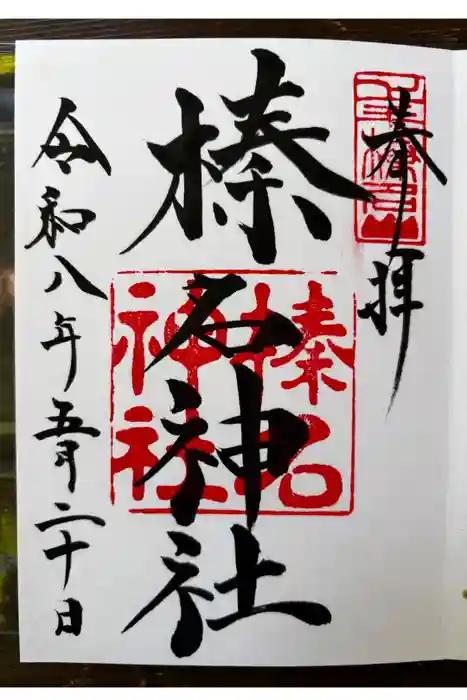 奉拝
榛名神社
榛名
神社
令和八年五月二十日